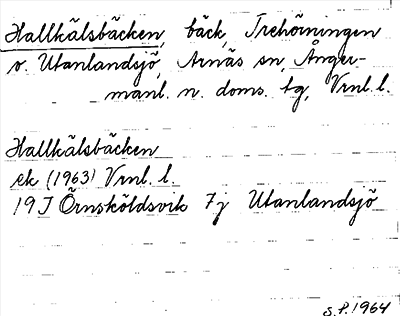 Hallkälsbäcken, bäck, Trehörningen
o. Utanlandsjö, Arnäs sn, Ånger-
manl. n. doms. tg, Vrnl. l.
Hallkälsbäcken
ek (1963) Vrnl. l.
19J Örnsköldsvik 7j Utanlandsjö
S.P. 1964